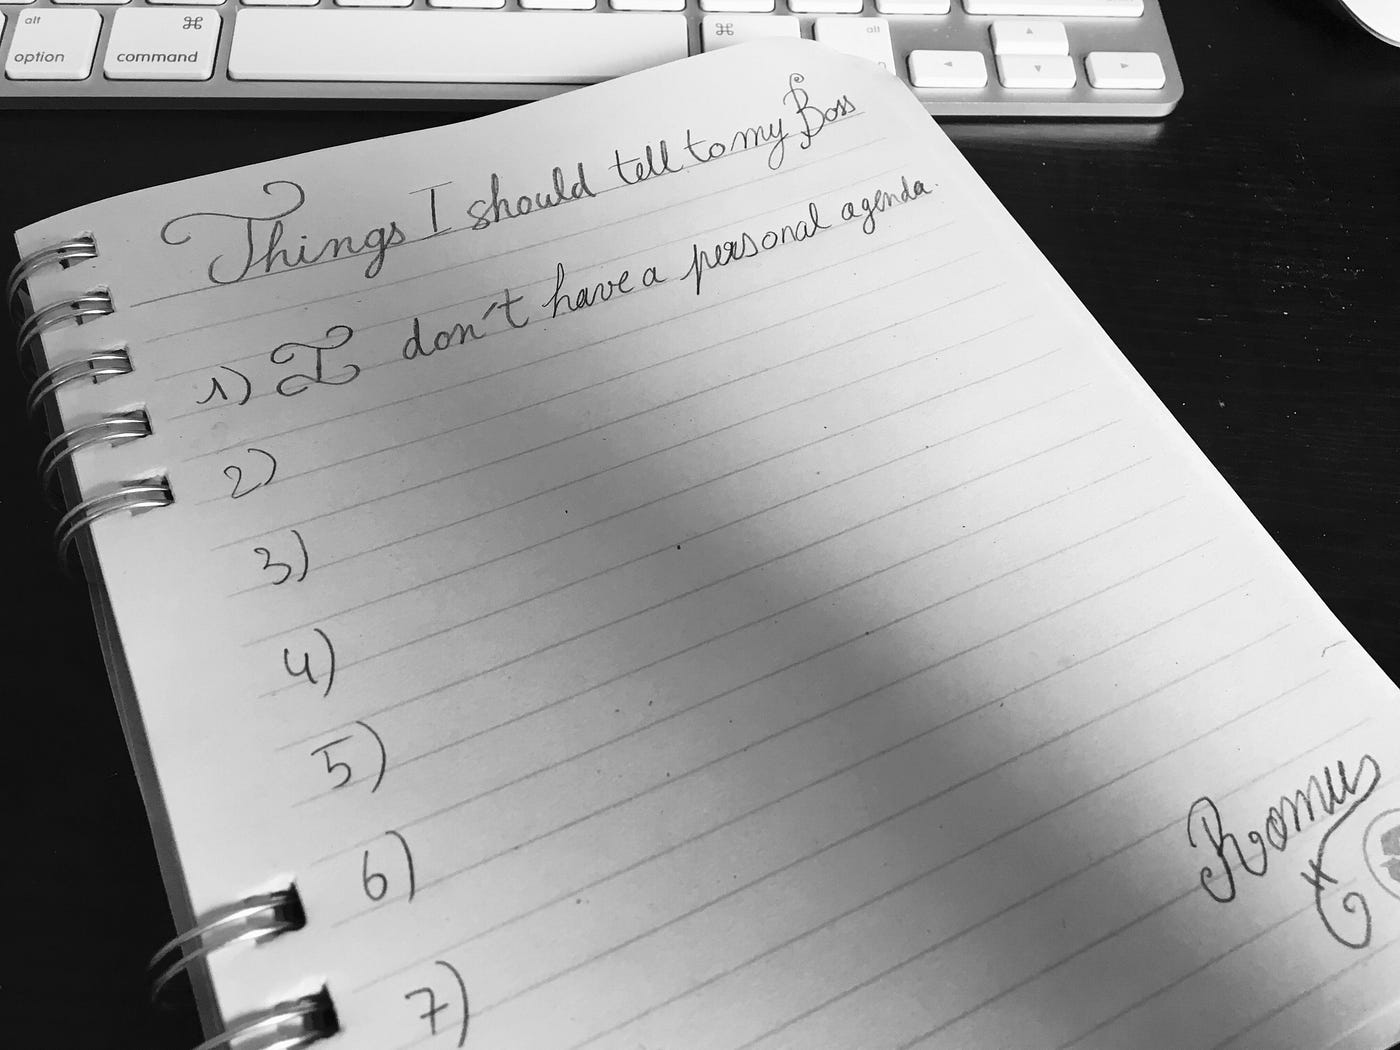 alt ⌘ ⌘ alt
option command
Things I should tell to my Boss
1) I don't have a personal agenda.
2)
3)
4)
5)
6)
7)
Romu